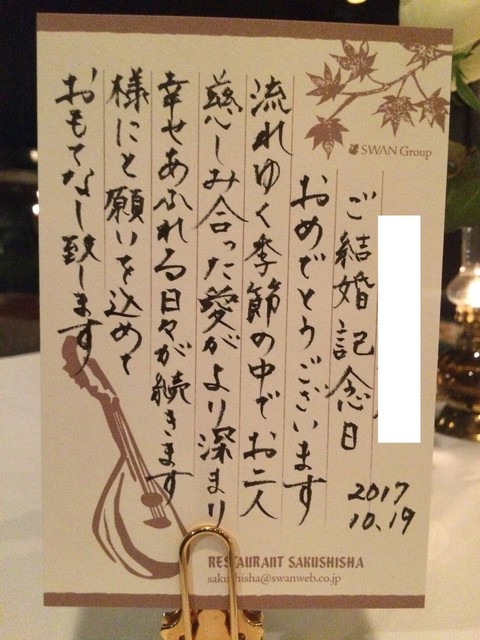 SWAN Group
ご結婚記念日
おめでとうございます
流れゆく季節の中でお二人
慈しみ合った愛がより深まり
幸せあふれる日々が続きます
様にと願いを込めて
おもてなし致します
2017
10.19
RESTAURANT SAKUSHISHA
sakushisha@swanweb.co.jp